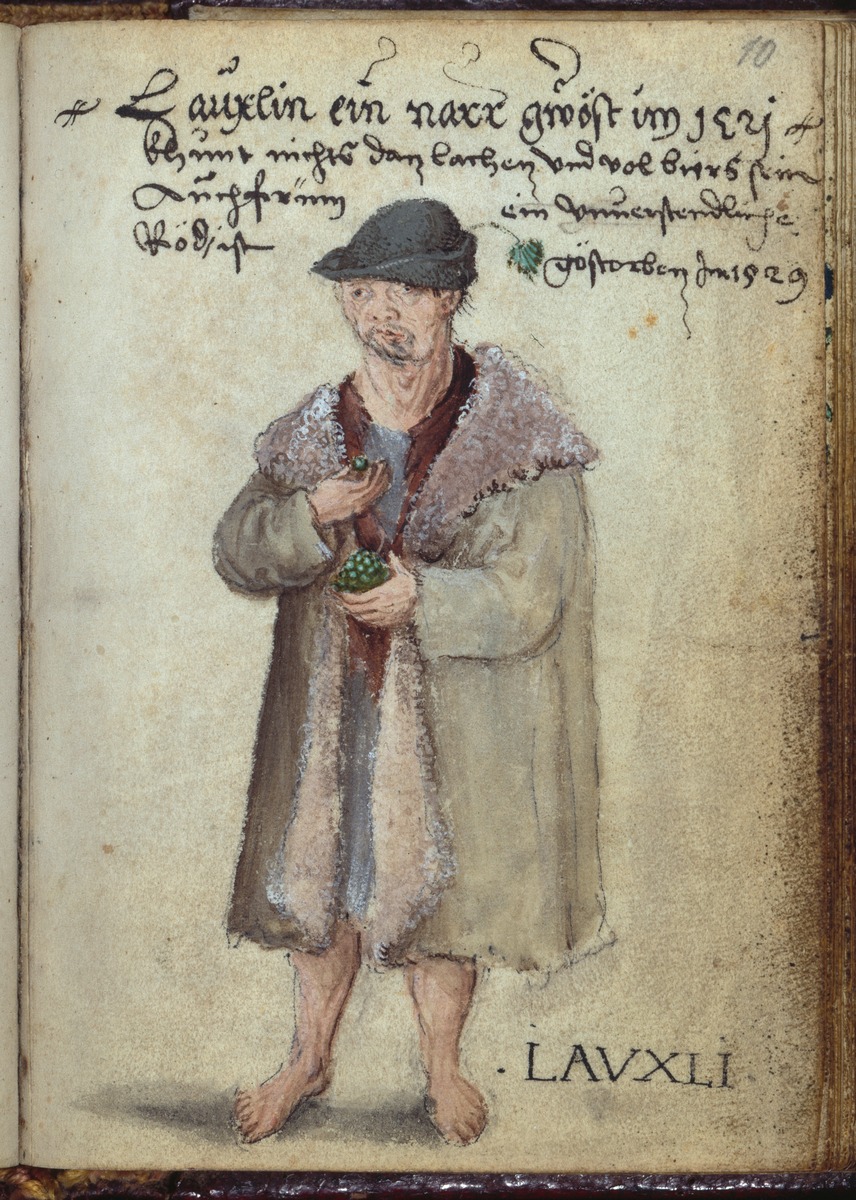 10
Lauxlin ein narr gwöst im 1521
khunt nichts dan lachen vnd vol biers sein
Auch frům ein vnuerstendliche
Röd ist göstorben Im 1529
· LAVXLI